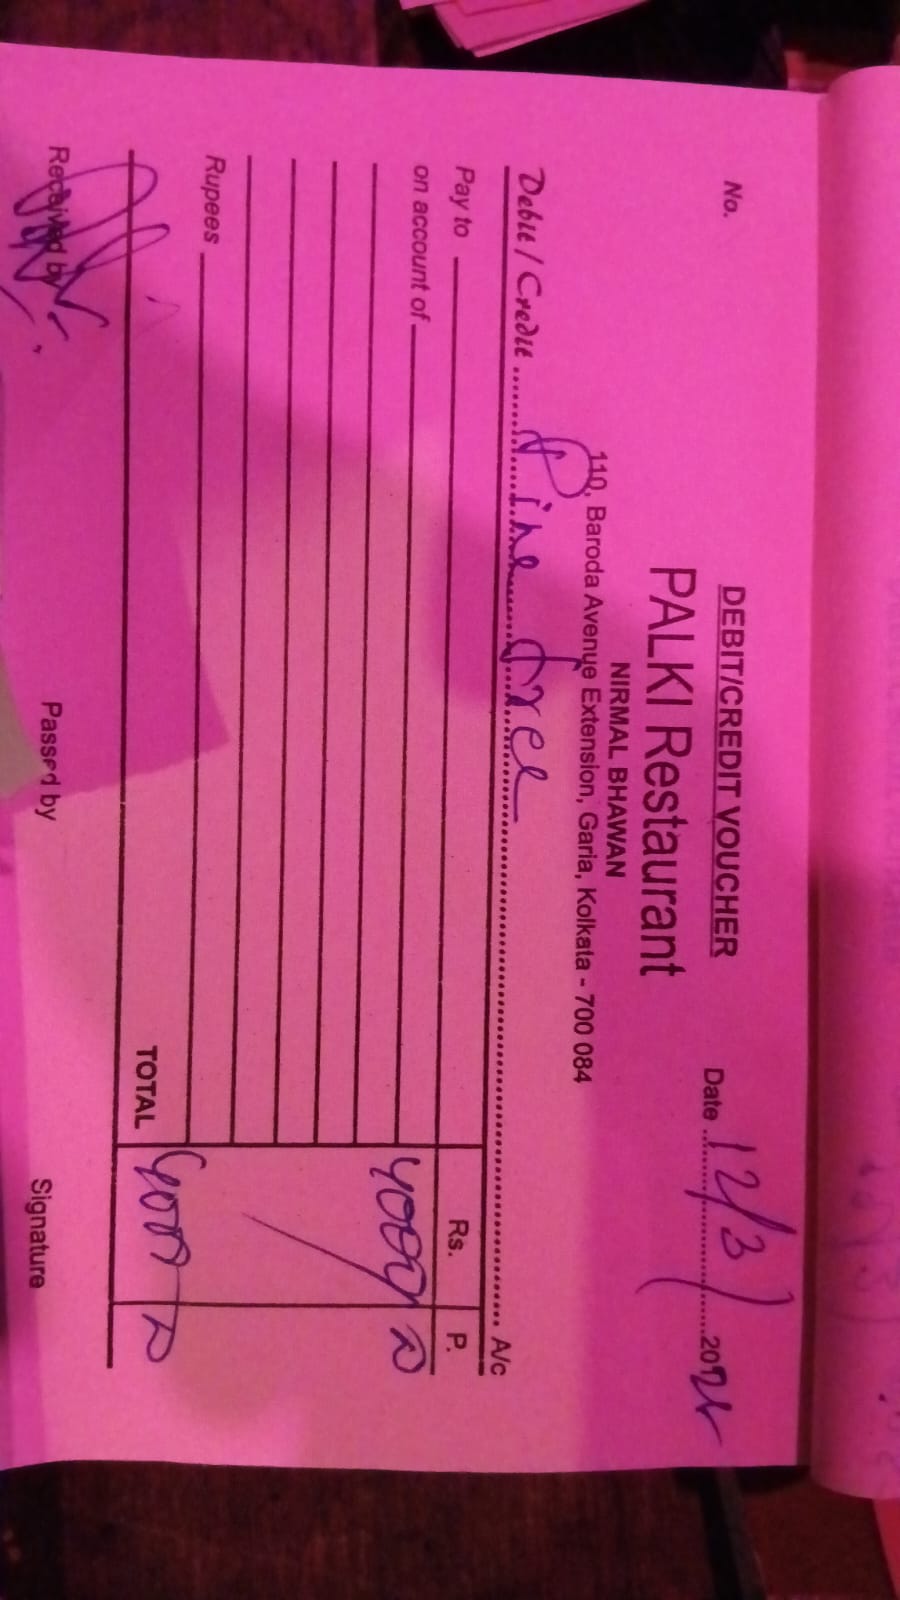 DEBIT/CREDIT VOUCHER
No.
PALKI Restaurant
Date 12/3/ 202
NIRMAL BHAWAN
110, Baroda Avenue Extension, Garia, Kolkata - 700 084
Debit / Credit Pine free A/c
Pay to Rs. P.
on account of 4000/
Rupees
TOTAL 4000
Received by Passed by Signature